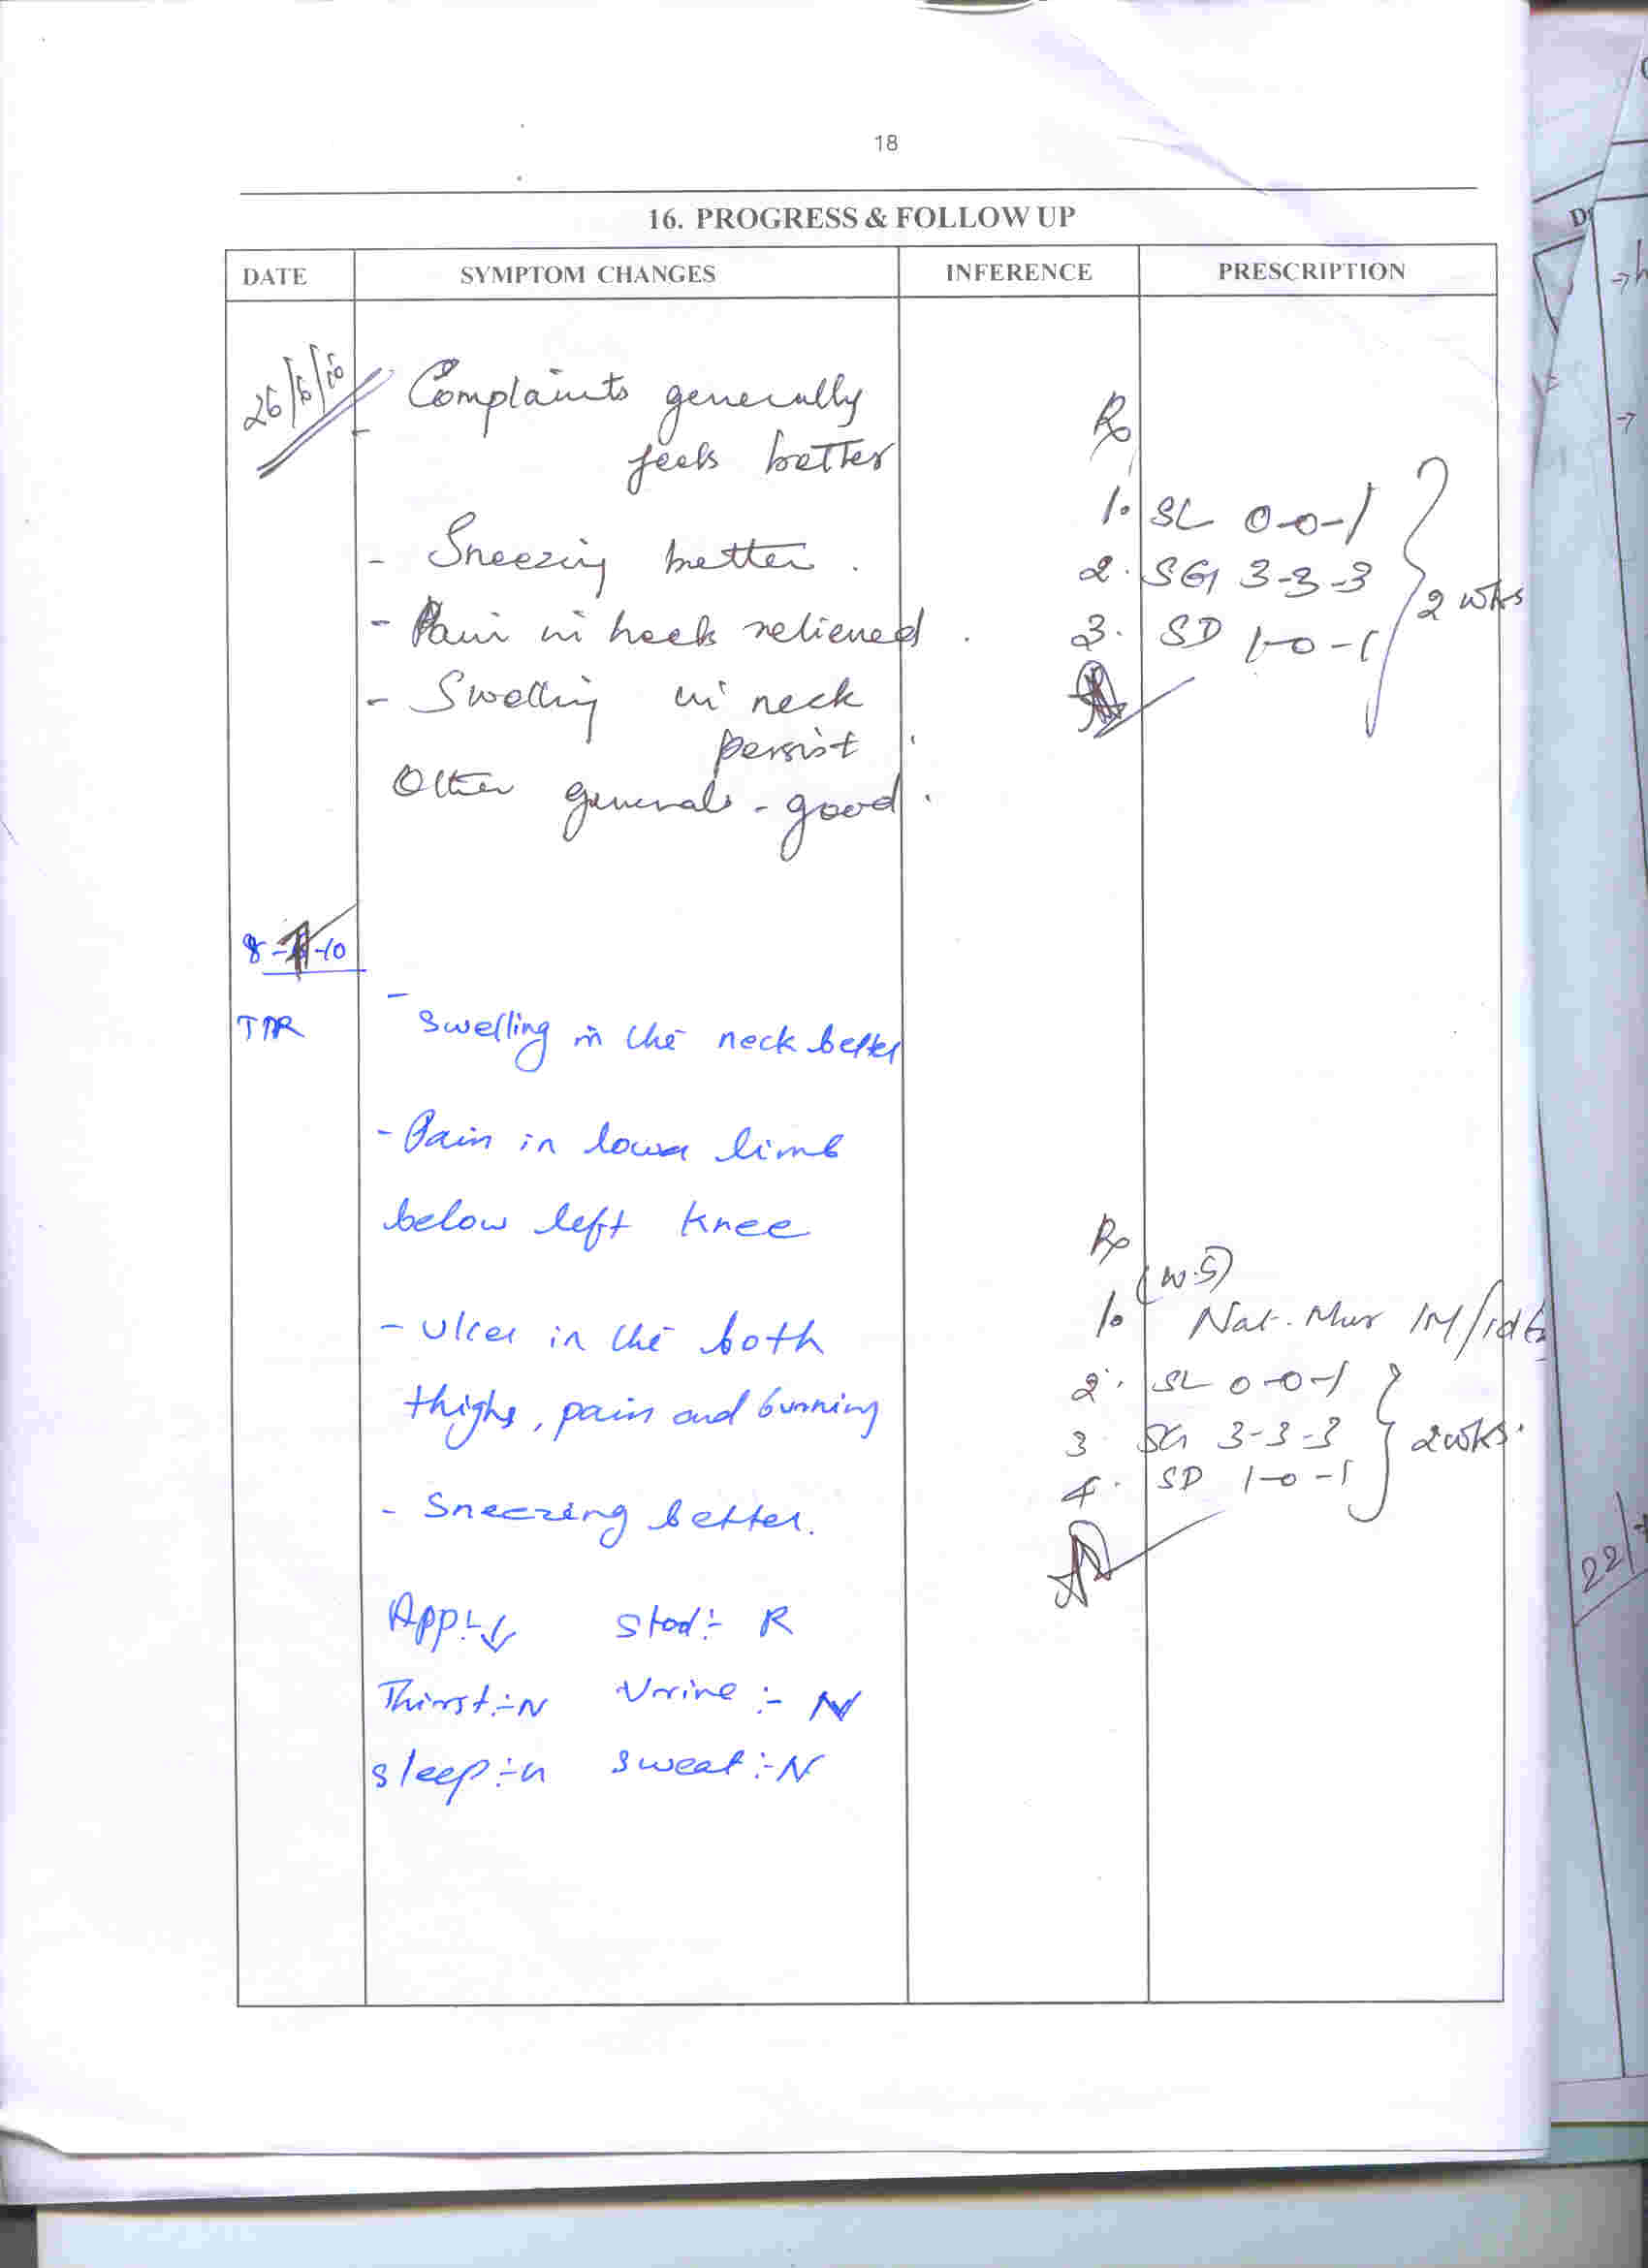 18
16. PROGRESS & FOLLOW UP
DATE SYMPTOM CHANGES INFERENCE PRESCRIPTION
26/6/10 - Complaints generally
feels better
- Sneezing better.
- Pain in heels relieved.
- Swelling in neck
persist.
Other generals - good.
Rx
1. SL 0-0-1
2. SG 3-3-3
3. SD 1-0-1
2 wks
8-7-10
- Swelling in the neck better
- Pain in lower limb
below left knee
- Ulcer in the both
thighs, pain and burning
- Sneezing better.
App:- ↓ Stool:- R
Thirst:- N Urine:- N
Sleep:- N Sweat:- N
Rx
(W.S)
1. Nat. Mur 1M/1d
2. SL 0-0-1
3 SG 3-3-3
4. SD 1-0-1
2 wks.
22/